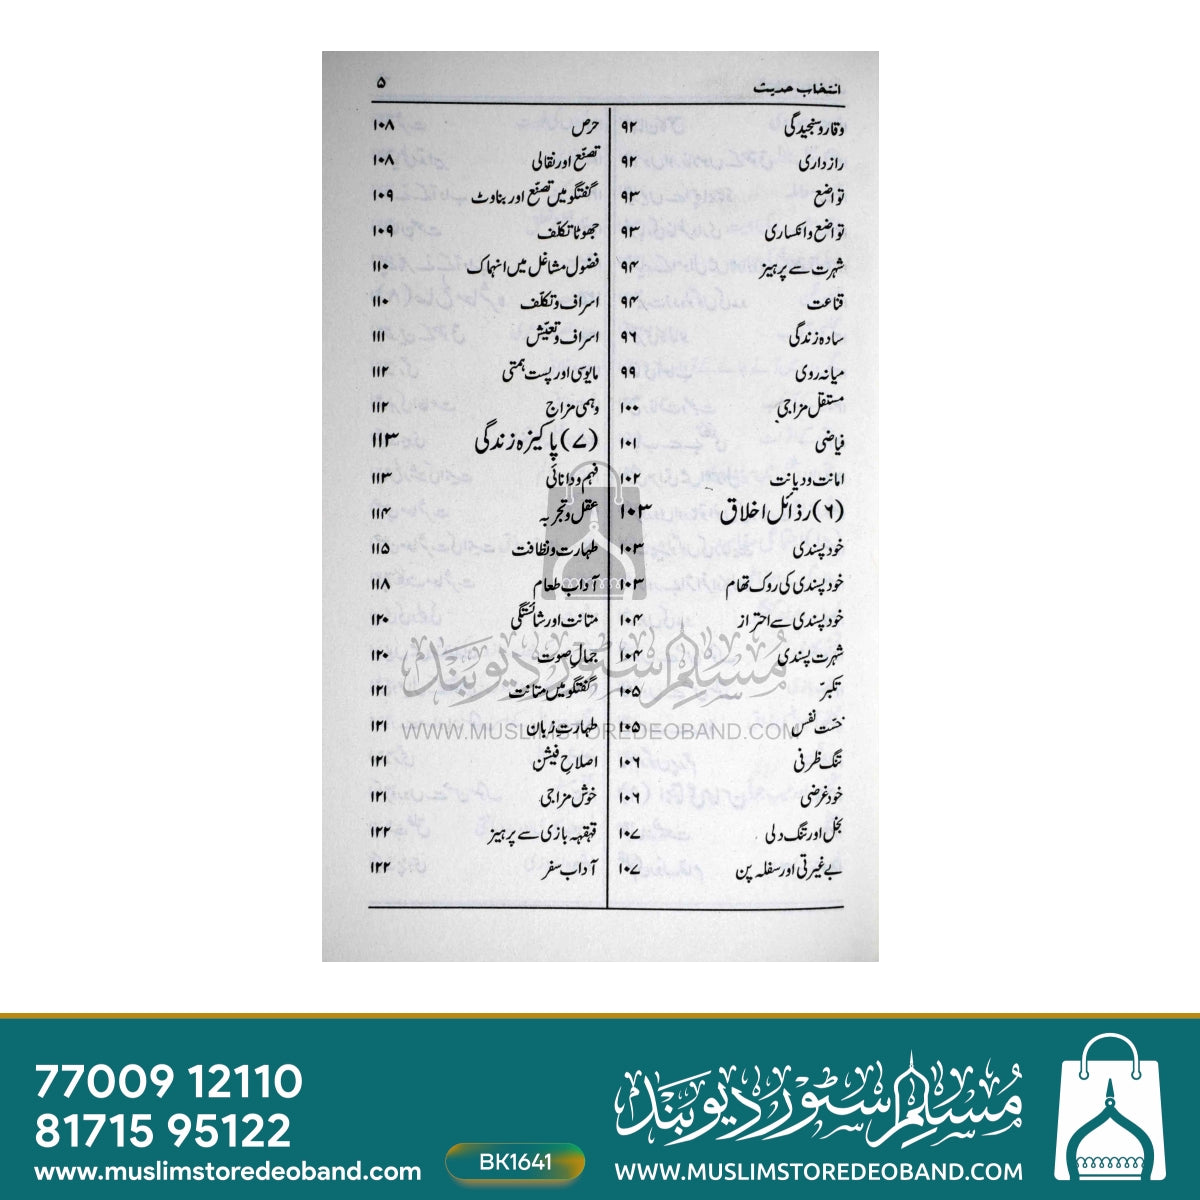 انتخاب حدیث ۵
وقار و سنجیدگی ۹۲
رازداری ۹۲
تواضع ۹۳
تواضع و انکساری ۹۳
شہرت سے پرہیز ۹۴
قناعت ۹۴
سادہ زندگی ۹۶
میانہ روی ۹۹
مستقل مزاجی ۱۰۰
فیاضی ۱۰۱
امانت و دیانت ۱۰۲
(۶) رذائل اخلاق ۱۰۳
خود پسندی ۱۰۳
خود پسندی کی روک تھام ۱۰۳
خود پسندی سے احتراز ۱۰۴
شہرت پسندی ۱۰۴
تکبّر ۱۰۵
خسّت نفس ۱۰۵
تنگ ظرفی ۱۰۶
خود غرضی ۱۰۶
بخل اور تنگ دلی ۱۰۷
بے غیرتی اور سفلہ پن ۱۰۷
حرص ۱۰۸
تصنّع اور نقالی ۱۰۸
گفتگو میں تصنّع اور بناوٹ ۱۰۹
جھوٹا تکلّف ۱۰۹
فضول مشاغل میں انہماک ۱۱۰
اسراف و تکلّف ۱۱۰
اسراف و تعیّش ۱۱۱
مایوسی اور پست ہمتی ۱۱۲
وہمی مزاج ۱۱۲
(۷) پاکیزہ زندگی ۱۱۳
فہم و دانائی ۱۱۳
عقل و تجربہ ۱۱۴
طہارت و نظافت ۱۱۵
آداب طعام ۱۱۸
متانت اور شائستگی ۱۲۰
جمالِ صوت ۱۲۰
گفتگو میں متانت ۱۲۱
طہارتِ زبان ۱۲۱
اصلاحِ فیشن ۱۲۱
خوش مزاجی ۱۲۱
قہقہہ بازی سے پرہیز ۱۲۲
آداب سفر ۱۲۲
مسلم سٹور دیوبند
WWW.MUSLIMSTOREDEOBAND.COM
77009 12110
81715 95122
www.muslimstoredeoband.com
BK1641
مسلم سٹور دیوبند
WWW.MUSLIMSTOREDEOBAND.COM